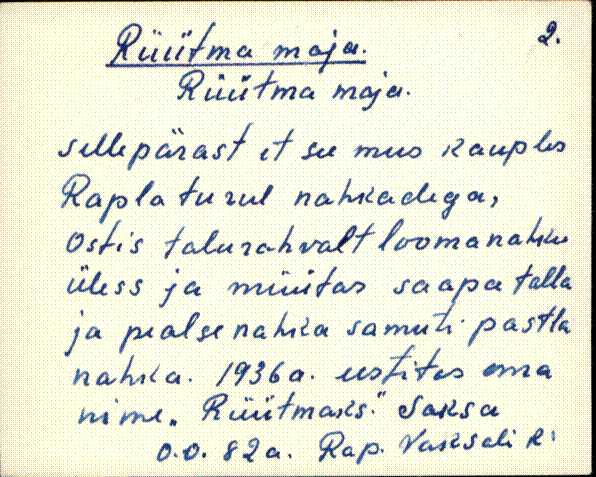 2.
Rüütma maja.
Rüütma maja.
sellepärast et see mus kauples
Rapla turul nahkadega,
Ostis talurahvalt loomanahku
üless ja müütas saapa talla
ja pealse nahka samuti pastla
nahka. 1936a. eestitas oma
nime „Rüütmaks." Saksa
o.o. 82a. Rap. Vaksali R: